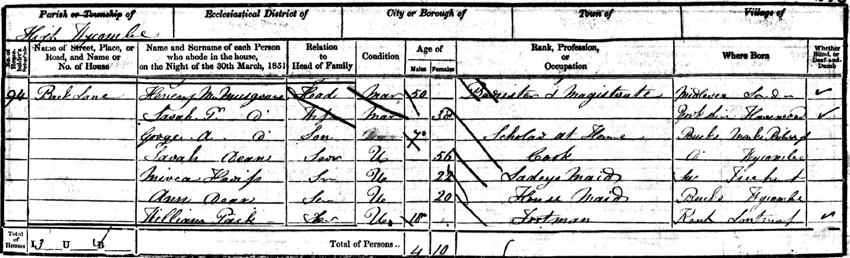 Parish or Township of
High Wycombe
Ecclesiastical District of
City or Borough of
Town of
Village of
Name of Street, Place, or Road, and Name or No. of House
Name and Surname of each Person who abode in the house, on the Night of the 30th March, 1851
Relation to Head of Family
Condition
Age of
Males
Females
Rank, Profession, or Occupation
Where Born
Whether Blind, or Deaf-and-Dumb
94 Back Lane Henry M Musgrave Head Mar 50 Barrister & Magistrate Middlesex
Sarah Do Wife Mar 58
George A. Do Son 7 Scholar at Home Bucks Monks
Sarah Dean Serv U 56 Cook Do Wycombe
Ser U 22 Ladys Maid
Ann Dean Ser U 20 House Maid Bucks Wycombe
William Pack Ser U 18 Footman Kent
Total of Houses
I 3 U B
Total of Persons..
4 10